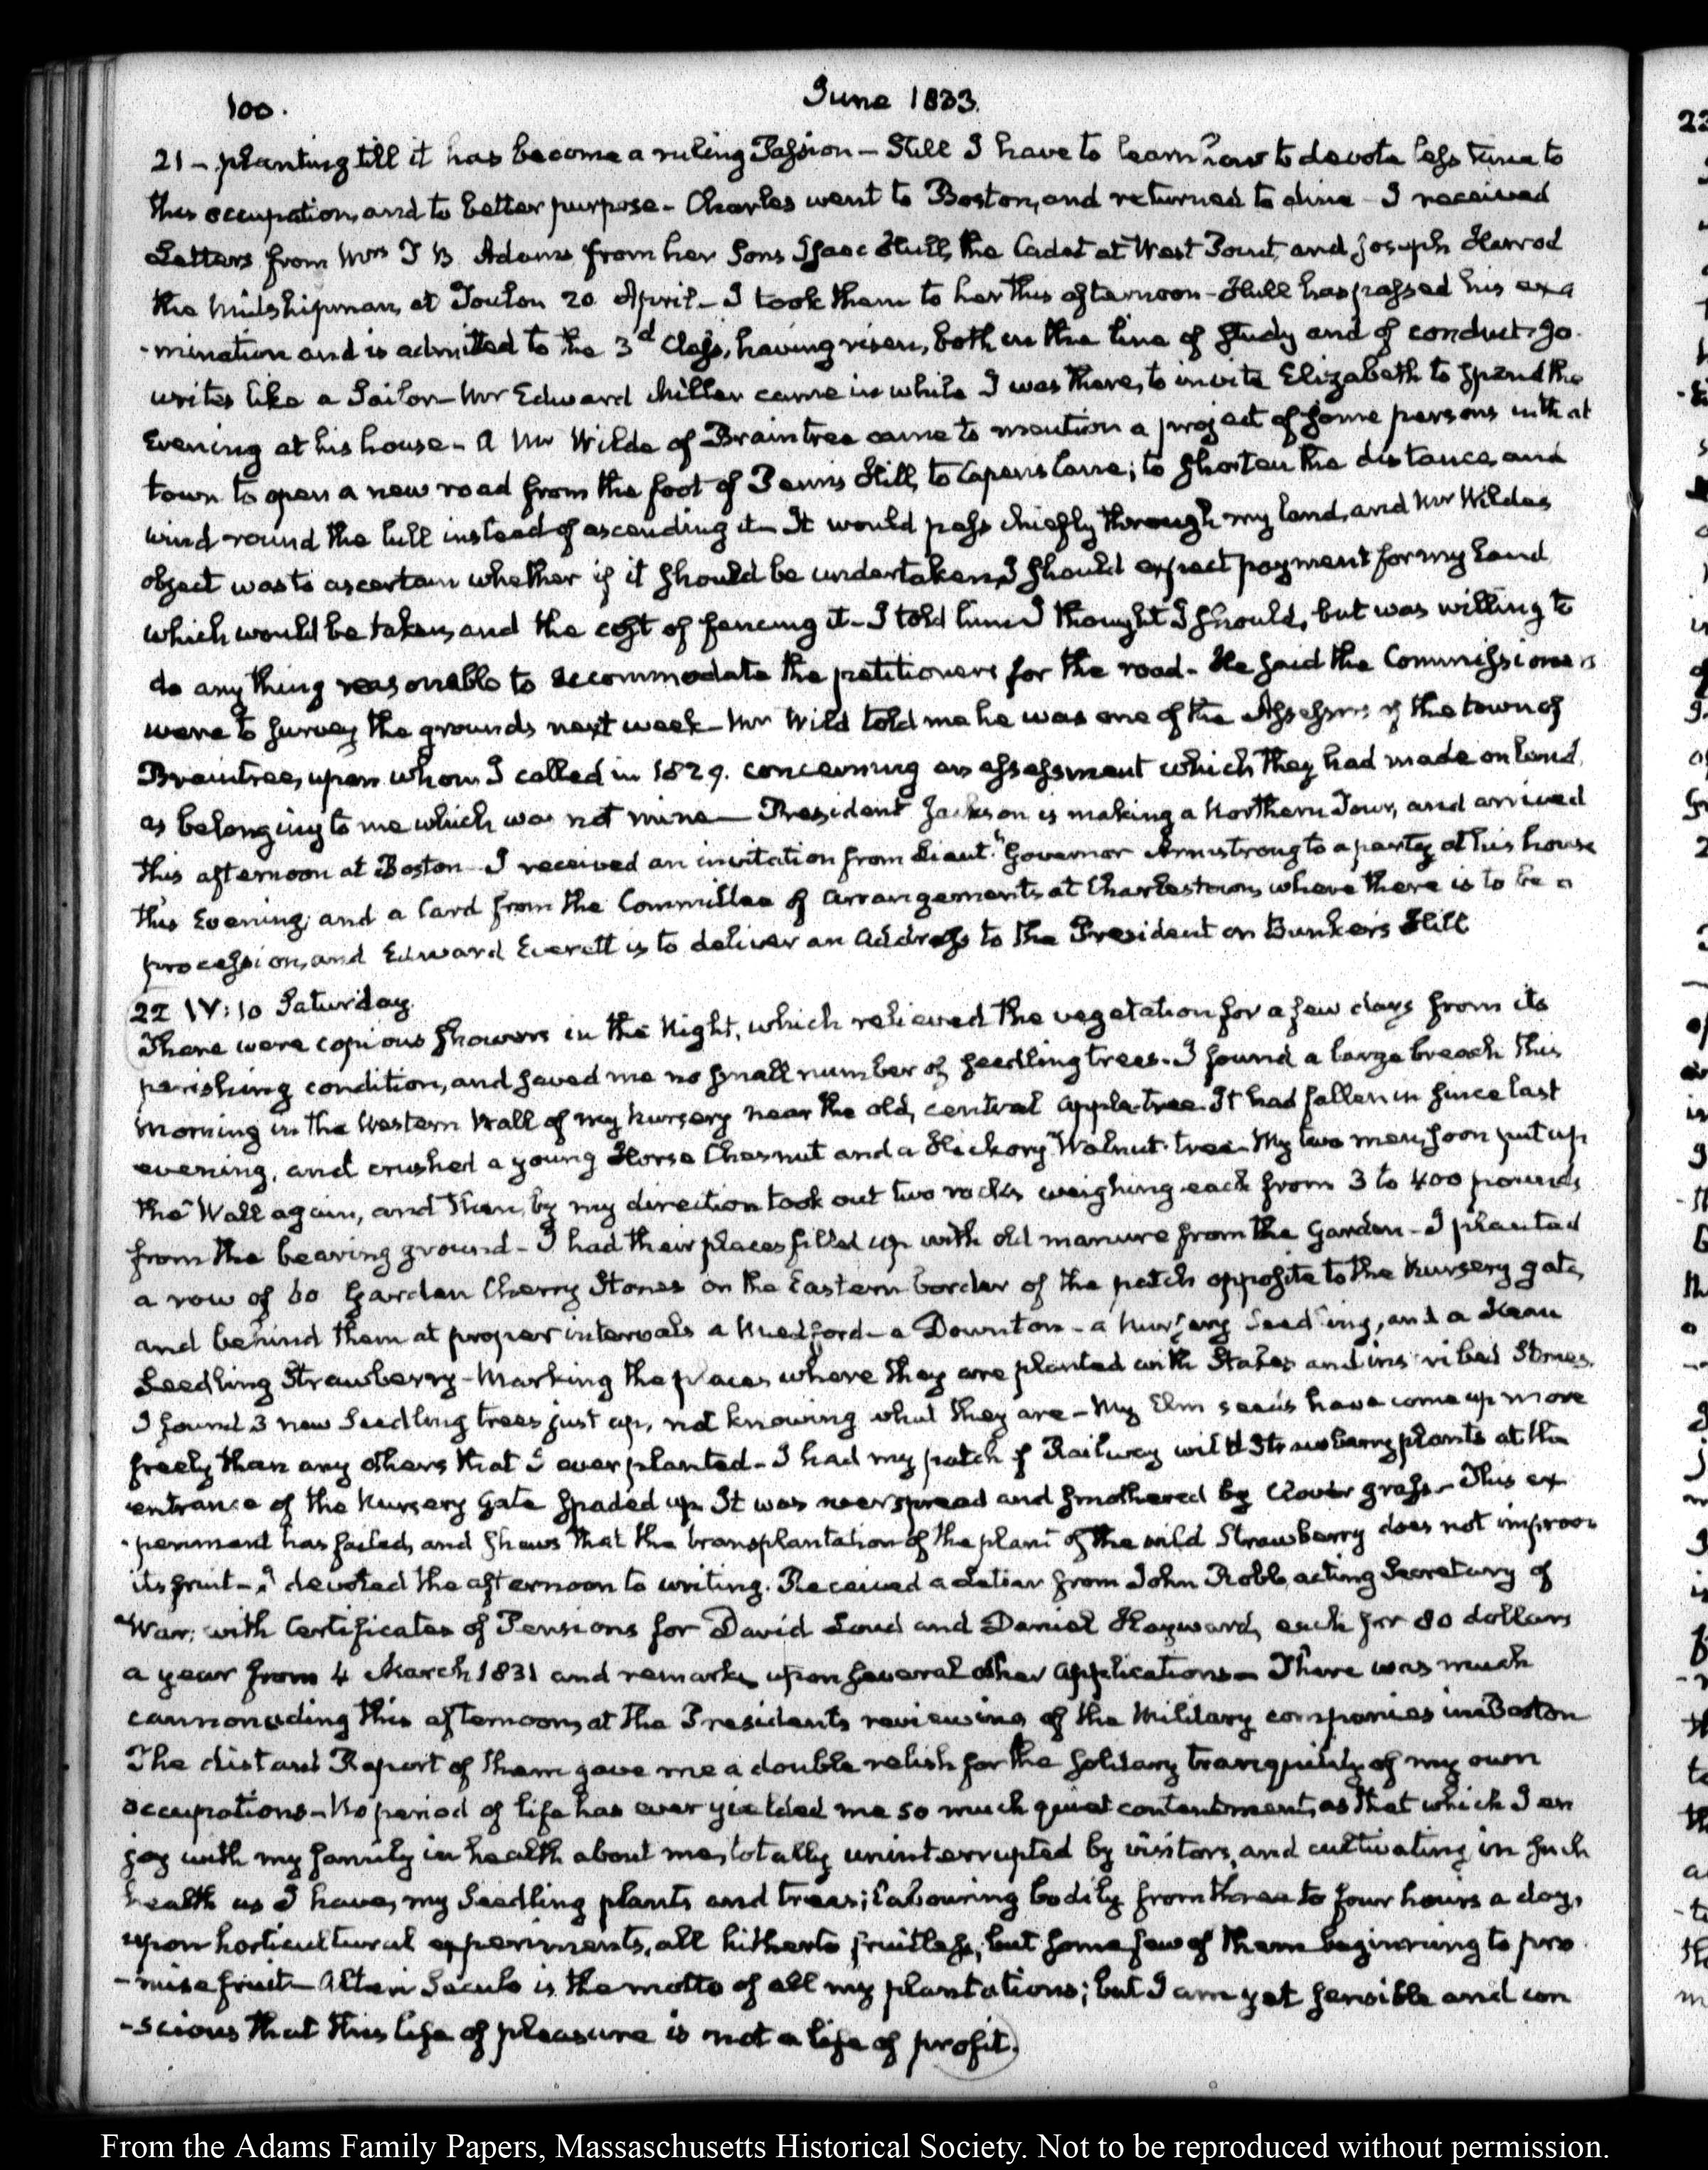 100.
June 1833.
21 - planting till it has become a ruling Passion - Still I have to learn how to devote less time to
this occupation, and to better purpose - Charles went to Boston, and returned to dine - I received
Letters from Mrs T B Adams from her Sons Isaac Hull, the Cadet at West Point, and Joseph Harrod
the Midshipman, at Toulon 20 April - I took them to her this afternoon - Hull has passed his exa
-mination and is admitted to the 3d Class, having risen, both in the line of Study and of conduct. Jo.
writes like a Sailor - Mr Edward Miller came in while I was there, to invite Elizabeth to spend the
Evening at his house - A Mr Wilde of Braintree came to mention a project of some persons in that
town to open a new road from the foot of Penns Hill, to Capens lane; to shorten the distance, and
wind round the hill instead of ascending it - It would pass chiefly through my land, and Mr Wildes
object was to ascertain whether if it should be undertaken, I should expect payment for my Land
which would be taken, and the cost of fencing it - I told him I thought I should, but was willing to
do any thing reasonable to accommodate the petitioners for the road - He said the Commissioners
were to survey the grounds next week - Mr Wild told me he was one of the Assessors of the town of
Braintree, upon whom I called in 1829. concerning an assessment which they had made on land,
as belonging to me which was not mine - President Jackson is making a Northern Tour, and arrived
this afternoon at Boston - I received an invitation from Lieut. Governor Armstrong to a party at his house
this Evening; and a Card from the Committee of arrangements at Charlestown, where there is to be a
procession, and Edward Everett is to deliver an Address to the President on Bunker's Hill
22 IV:10 Saturday.
There were copious showers in the Night, which relieved the vegetation for a few days from its
perishing condition, and saved me no small number of seedling trees. I found a large breach this
morning in the Western Wall of my Nursery near the old, central apple-tree. It had fallen in since last
evening, and crushed a young Horse Chesnut and a Hickory Walnut-tree - My two men, soon put up
the Wall again, and then, by my direction took out two rocks weighing each from 3 to 400 pounds,
from the bearing ground - I had their places filled up with old manure from the Garden - I planted
a row of 60 Garden Cherry Stones on the Eastern border of the patch opposite to the Nursery gate,
and behind them at proper intervals a Medford - a Downton - a Nursery Seedling, and a Kean
Seedling Strawberry - Marking the places where they are planted with Stakes and inscribed Stones.
I found 3 new Seedling trees just up, not knowing what they are - My Elm seeds have come up more
freely than any others that I ever planted - I had my patch of Railway wild Strawberry plants at the
entrance of the Nursery Gate spaded up. It was overspread and smothered by Clover grass - This ex
-periment has failed, and shews that the transplantation of the plant of the wild Strawberry does not improve
its fruit - I devoted the afternoon to writing. Received a Letter from John Robb acting Secretary of
War; with Certificates of Pensions for David Loud and Daniel Hayward, each for 80 dollars
a year from 4 March 1831 and remarks upon several other applications - There was much
cannonading this afternoon, at the Presidents reviewing of the Military companies in Boston
The distant Report of them gave me a double relish for the solitary tranquility of my own
occupations - No period of life has ever yielded me so much quiet contentment, as that which I en
joy with my family in health about me, totally uninterrupted by visitors, and cultivating, in such
health as I have, my Seedling plants and trees; labouring bodily from three to four hours a day,
upon horticultural experiments, all hitherto fruitless, but some few of them beginning to pro
-mise fruit - Alteri Seculo is the motto of all my plantations; but I am yet sensible and con
-scious that this life of pleasure is not a life of profit.
From the Adams Family Papers, Massaschusetts Historical Society. Not to be reproduced without permission.